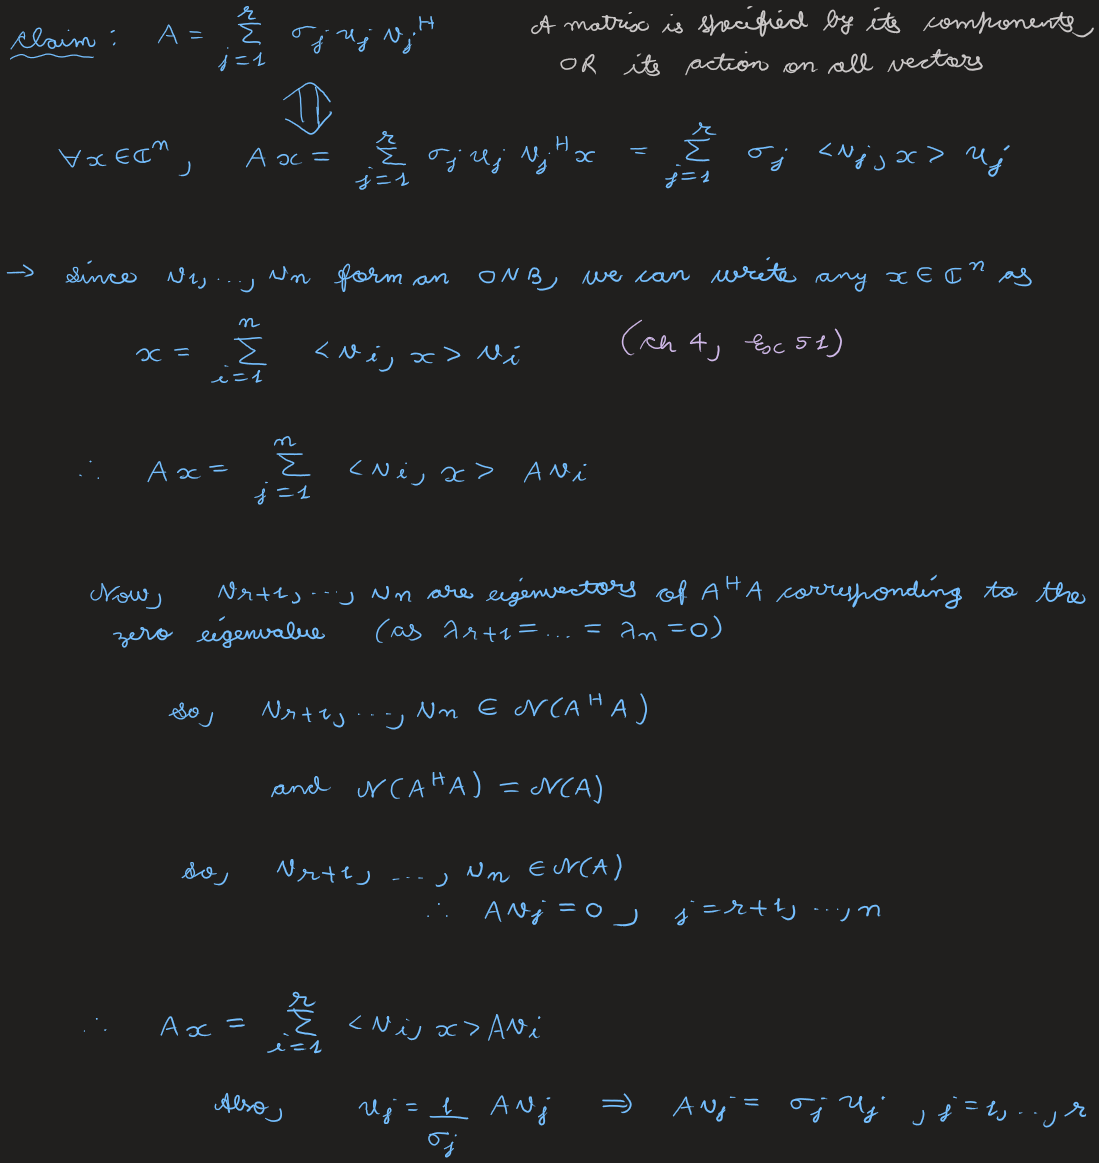 Claim: A = \sum_{j=1}^{r} σ_j u_j v_j^H
A matrix is specified by its components
OR its action on all vectors
⇕
∀x ∈ ℂ^n, Ax = \sum_{j=1}^{r} σ_j u_j v_j^H x = \sum_{j=1}^{r} σ_j <v_j, x> u_j
→ since v_1, ..., v_n form an ONB, we can write any x ∈ ℂ^n as
x = \sum_{i=1}^{n} <v_i, x> v_i (ch 4, Exc 51)
∴ Ax = \sum_{j=1}^{n} <v_i, x> Av_i
Now, v_{r+1}, ..., v_n are eigenvectors of A^H A corresponding to the
zero eigenvalue (as λ_{r+1} = ... = λ_n = 0)
so, v_{r+1}, ..., v_n ∈ N(A^H A)
and N(A^H A) = N(A)
so, v_{r+1}, ..., v_n ∈ N(A)
∴ Av_j = 0, j = r+1, ..., n
∴ Ax = \sum_{i=1}^{r} <v_i, x> Av_i
Also, u_j = \frac{1}{σ_j} Av_j ⇒ Av_j = σ_j u_j, j = 1, ..., r